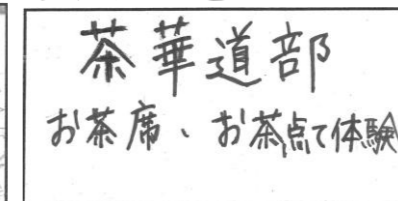 茶華道部
お茶席、お茶点て体験